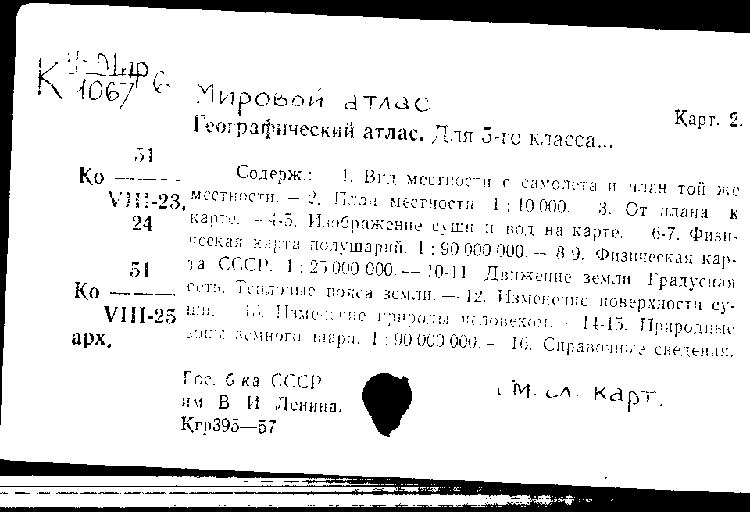 К
1067
6
Мировой атлас
Карт. 2.
Географический атлас. Для 5-го класса...
51
Ко
VIII-23,
24
51
Ко
VIII-25
арх.
Содерж.: 1. Вид местности с самолета и план той же
местности. — 2. План местности 1 : 10 000. 3. От плана к
карте. — 4-5. Изображение суши и вод на карте. 6-7. Физи-
ческая карта полушарий. 1 : 90 000 000. — 8-9. Физическая кар-
та СССР. 1 : 25 000 000. — 10-11. Движение земли. Градусная
сеть. Тепловые пояса земли. — 12. Изменение поверхности су-
ши. 13. Изменение природы человеком. - 14-15. Природные
зоны земного шара. 1 : 90 000 000. - 16. Справочные сведения.
Гос. б-ка СССР
им В И Ленина.
Кгр395—57
см. сл. карт.